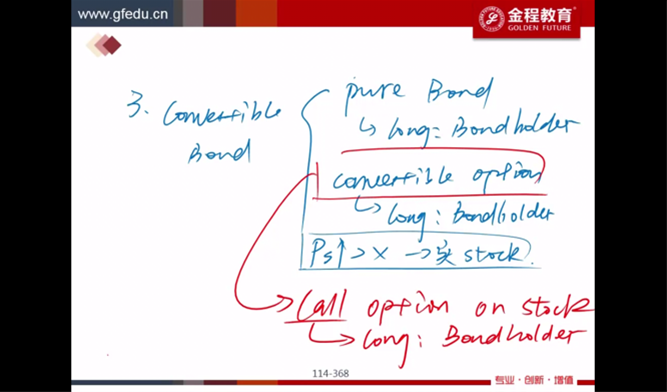 www.gfedu.cn
金程教育
GOLDEN FUTURE
3. Convertible Bond
pure Bond
↳ long: Bondholder
convertible option
↳ long: Bondholder
Ps↑ > X → 买 stock.
Call option on stock
↳ long: Bondholder
114-368
专业·创新·增值